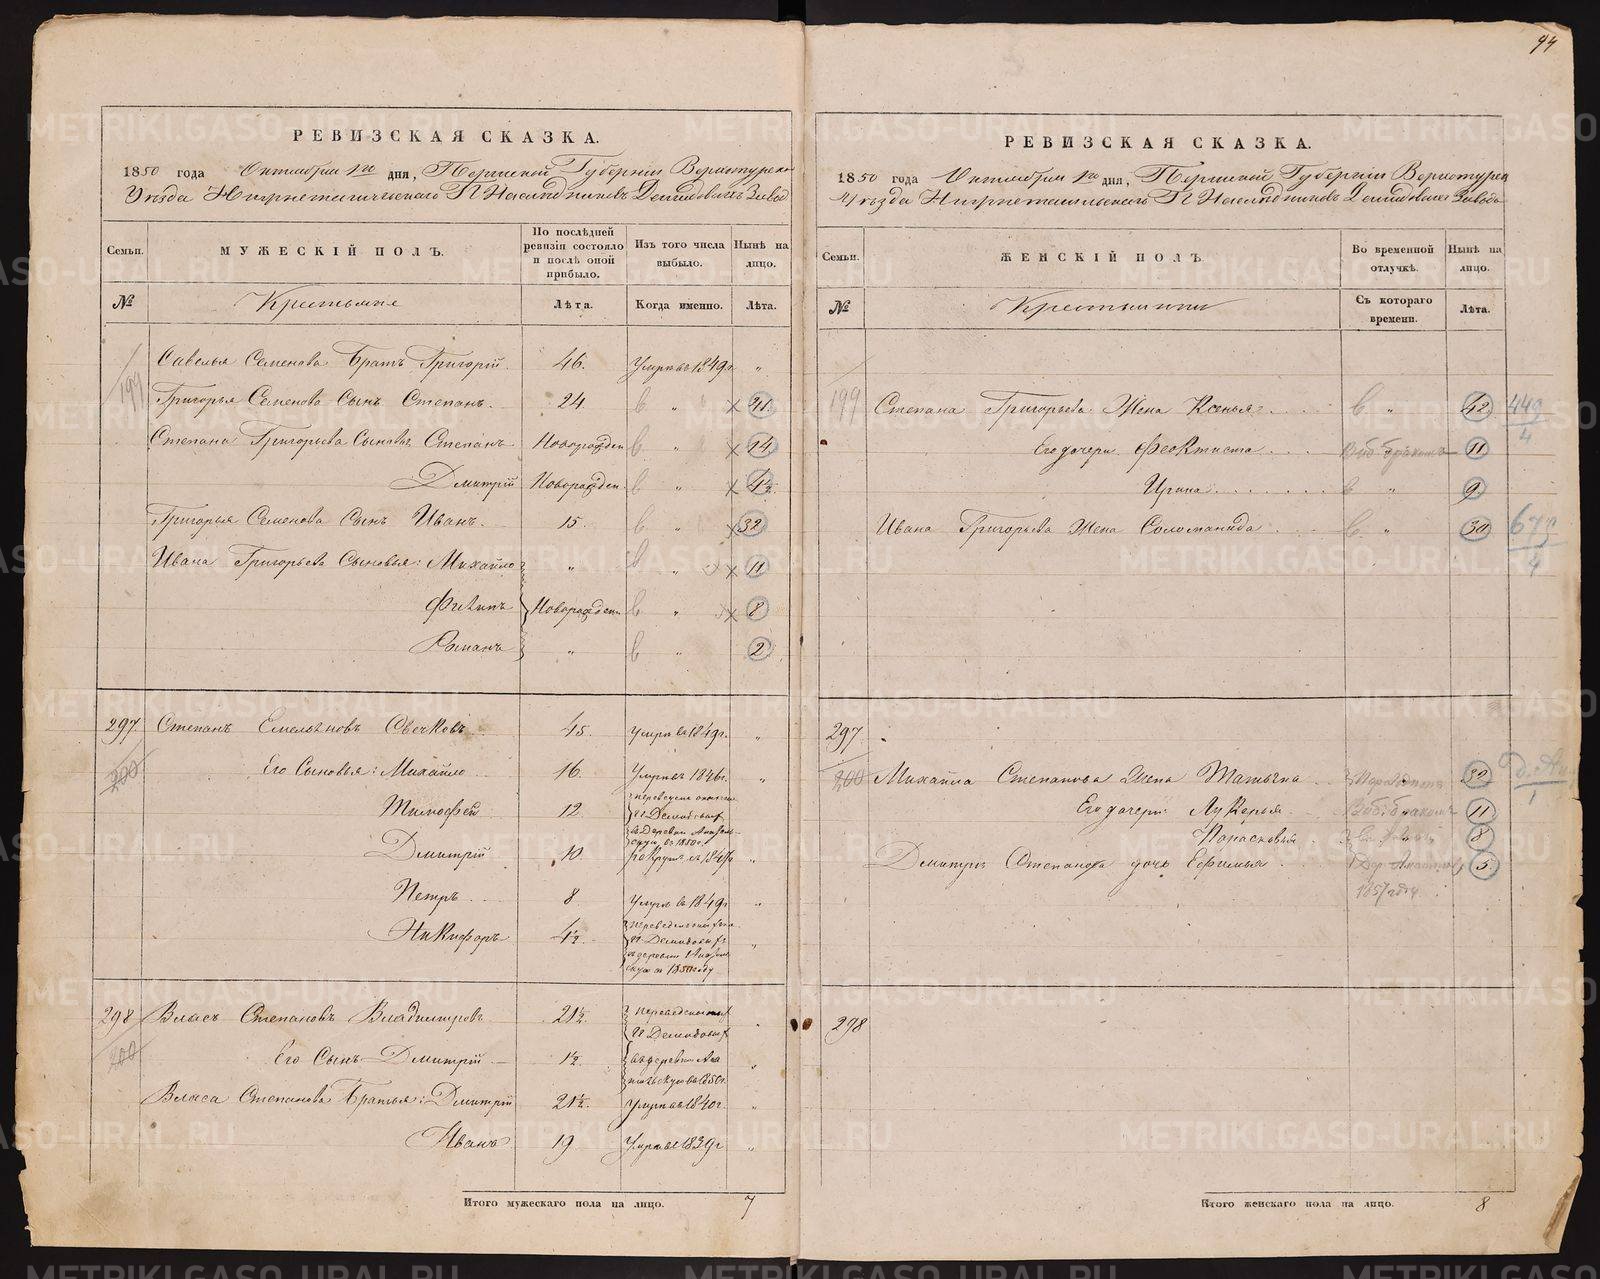 94
РЕВИЗСКАЯ СКАЗКА.
1850 года Октября 1го дня, Пермской Губерніи Верхотурска
Уѣзда Нижнетагильскаго П. Наслѣдниковъ Демидовыхъ Завод
Семьи. МУЖЕСКІЙ ПОЛЪ. По послѣдней ревизіи состояло и послѣ оной прибыло. Изъ того числа выбыло. Нынѣ на лицо.
№ Крестьяне Лѣта. Когда именно. Лѣта.
Савелья Семенова Братъ Григорій 46. Умеръ въ 1849г. "
199 Григорья Семенова Сынъ Степанъ. 24 " 41
Степана Григорьева Сыновья Степанъ Новорожден " 14
Дмитрій Новорожден. " 4½
Григорья Семенова Сынъ Иванъ. 15. " 32
Ивана Григорьева Сыновья: Михайло " " 11
Филипъ Новорожден " 8
Романъ " " 2
297. Степанъ Емельяновъ Свечковъ 45. умеръ въ 1849г. "
200 Его Сыновья: Михайло 16. Умеръ въ 1846г. "
Тимофей 12.
въ 1850г.
Дмитрій 10. въ рекруты съ 1847г "
Петръ 8 умеръ въ 1849г "
Никифоръ 4½ "
Демидовыхъ
въ 1850 году
298 Власъ Степановъ Владимировъ 21½ переведены "
200 Его Сынъ Дмитрій 1½ въ деревню "
въ 1850г.
Власа Степанова Братья: Дмитрій 21½. Умеръ въ 1840г. "
Иванъ 19 Умеръ въ 1839г "
Итого мужескаго пола на лицо. 7
РЕВИЗСКАЯ СКАЗКА.
1850 года Октября 1го дня, Пермской Губерніи Верхотурск
Уѣзда Нижнетагильскаго П. Наслѣдниковъ Демидовыхъ Завода
Семьи. ЖЕНСКІЙ ПОЛЪ. Во временной отлучкѣ. Нынѣ на лицо.
№ Крестьянки Съ котораго времени. Лѣта.
199 Степана Григорьева Жена Ксенья " 42 449/4
Его дочери Феоктиста 11
Ирина " 9
Ивана Григорьева Жена Соломанида " 30 679/4
297
200 Михайла Степанова Жена Татьяна 32
Его дочери Лукерья 11
Парасковья 8
Дмитрія Степанова дочь Ефимья 5
1857 году
298
Итого женскаго пола на лицо. 8
METRIKI.GASO-URAL.RU